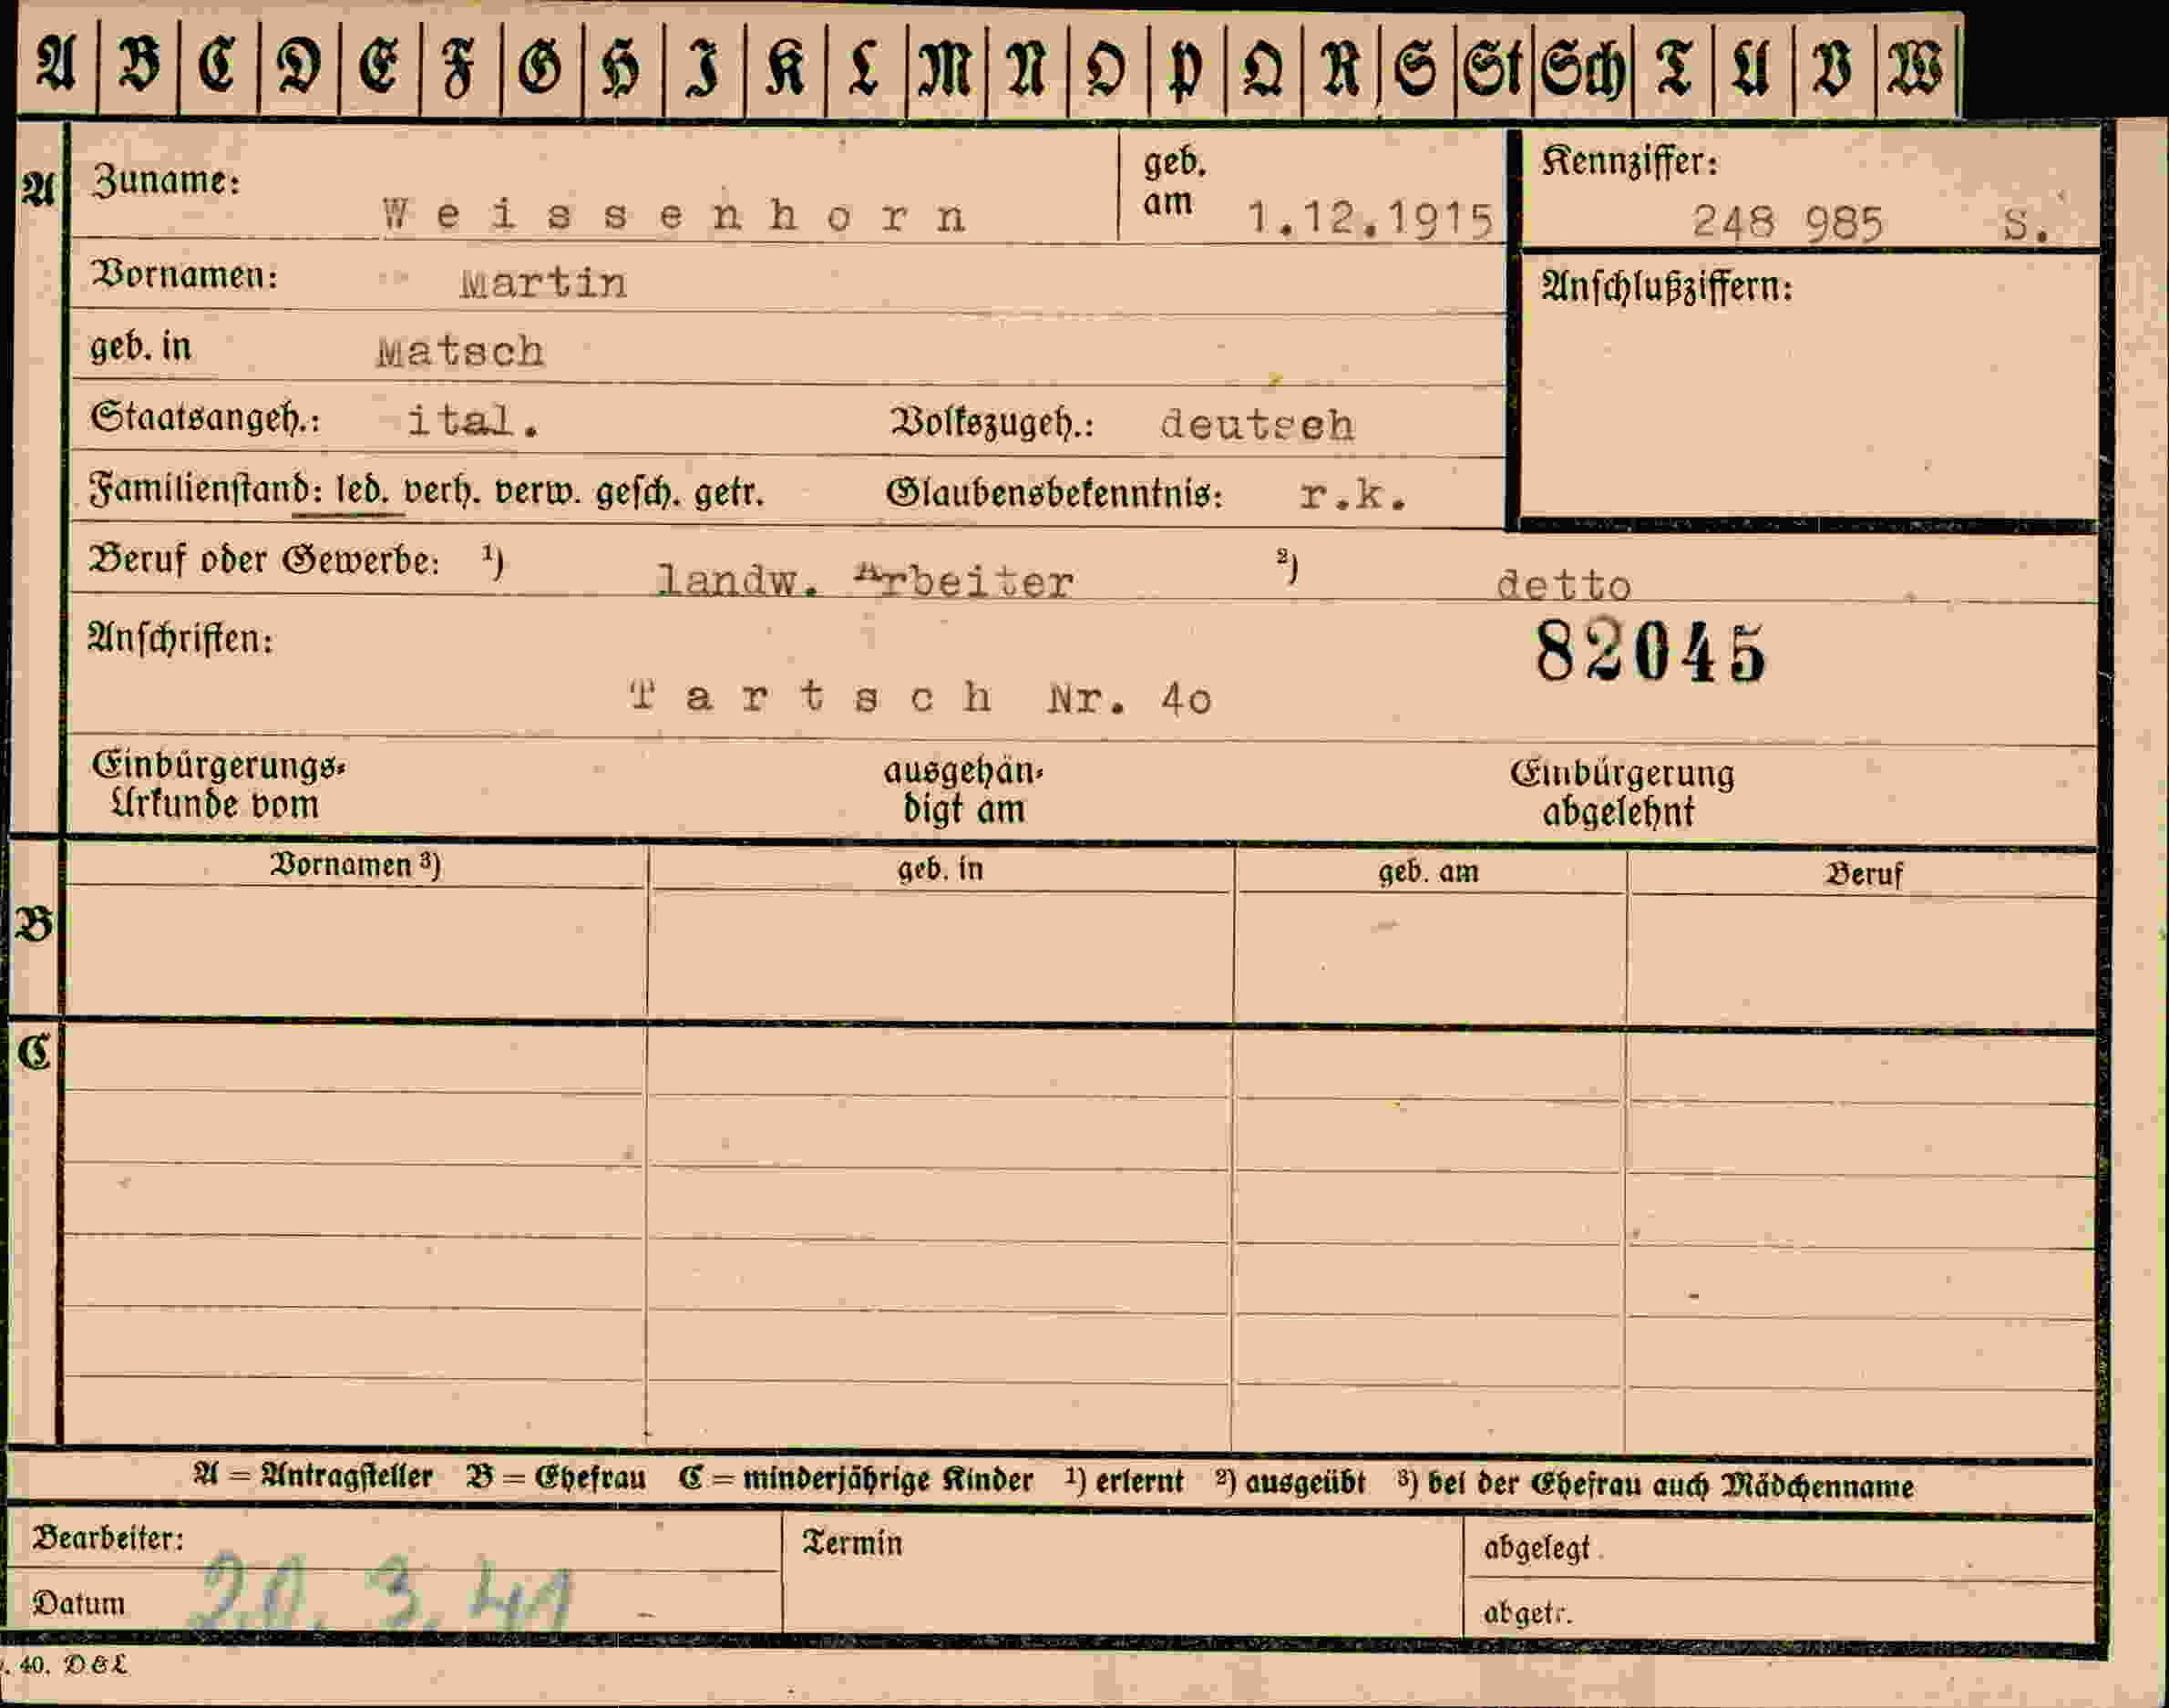 A B C D E F G H I K L M N O P Q R S St Sch T U V W
A Zuname: Weissenhorn geb. am 1.12.1915 Kennziffer: 248 985 S.
Vornamen: Martin Anschlußziffern:
geb. in Matsch
Staatsangeh.: ital. Volkszugeh.: deutsch
Familienstand: led. verh. verw. gesch. getr. Glaubensbekenntnis: r.k.
Beruf oder Gewerbe: 1) landw. Arbeiter 2) detto
Anschriften: 82045
Tartsch Nr. 4o
Einbürgerungs- ausgehän- Einbürgerung
Urkunde vom digt am abgelehnt
Vornamen 3) geb. in geb. am Beruf
B
C
A = Antragsteller B = Ehefrau C = minderjährige Kinder 1) erlernt 2) ausgeübt 3) bei der Ehefrau auch Mädchenname
Bearbeiter: Termin abgelegt
Datum 20. 3. 41 abgetr.
. 40. D&L